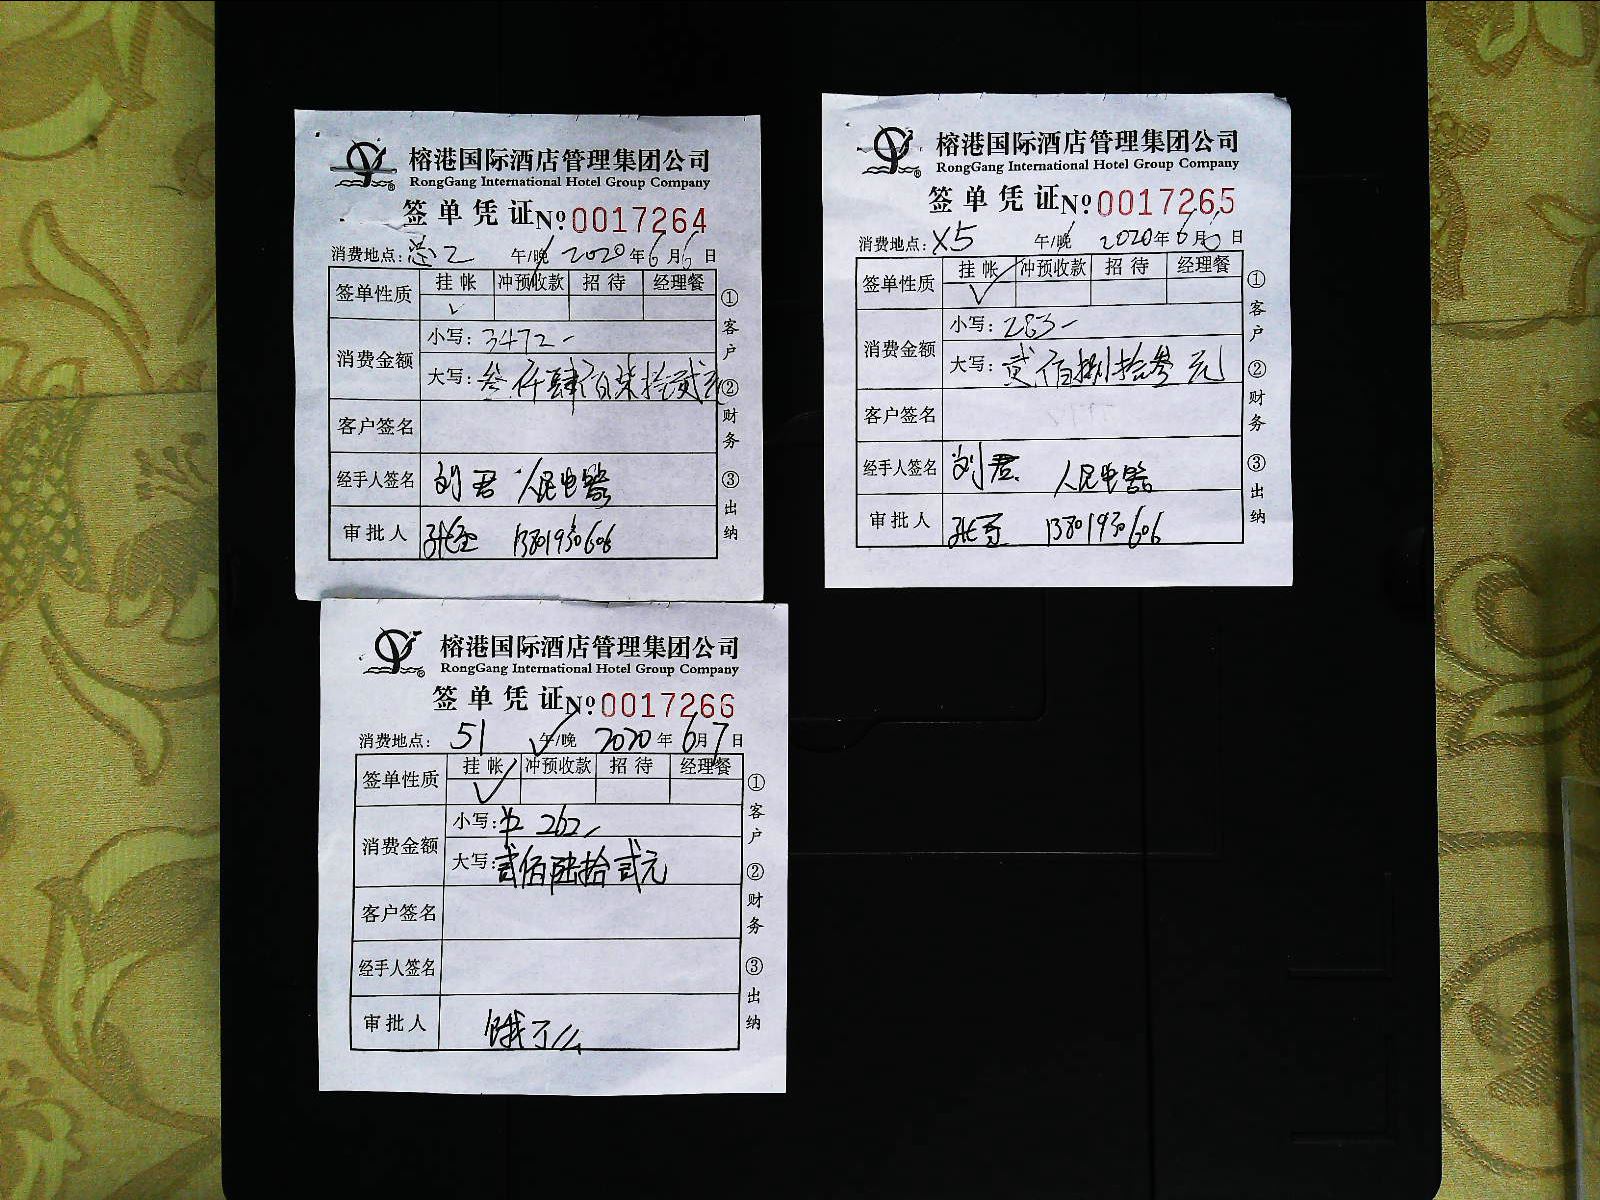 榕港国际酒店管理集团公司
RongGang International Hotel Group Company
签单凭证 №0017264
消费地点: 午/晚 2020年6月6日
签单性质 挂帐 冲预收款 招待 经理餐
✓
消费金额 小写: 3472-
大写: 叁仟肆佰柒拾贰元
客户签名
经手人签名 刘君 人民电器
审批人 13801930606
①客户 ②财务 ③出纳
榕港国际酒店管理集团公司
RongGang International Hotel Group Company
签单凭证 №0017265
消费地点: X5 午/晚 2020年6月6日
签单性质 挂帐 冲预收款 招待 经理餐
✓
消费金额 小写: 283-
大写: 贰佰捌拾叁元
客户签名
经手人签名 刘君 人民电器
审批人 13801930606
①客户 ②财务 ③出纳
榕港国际酒店管理集团公司
RongGang International Hotel Group Company
签单凭证 №0017266
消费地点: 51 午/晚 2020年6月7日
签单性质 挂帐 冲预收款 招待 经理餐
✓
消费金额 小写: 262-
大写: 贰佰陆拾贰元
客户签名
经手人签名
审批人 饿了么
①客户 ②财务 ③出纳